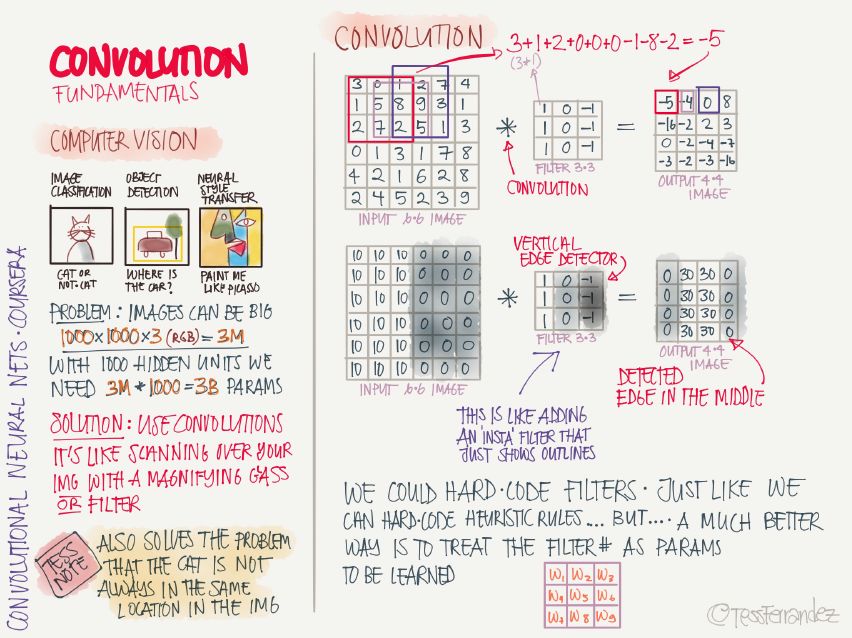 CONVOLUTION
FUNDAMENTALS
COMPUTER VISION
IMAGE
CLASSIFICATION
CAT OR
NOT-CAT
OBJECT
DETECTION
WHERE IS
THE CAR?
NEURAL
STYLE
TRANSFER
PAINT ME
LIKE PICASSO
PROBLEM: IMAGES CAN BE BIG
1000×1000×3 (RGB) = 3M
WITH 1000 HIDDEN UNITS WE
NEED 3M * 1000 = 3B PARAMS
SOLUTION: USE CONVOLUTIONS
IT'S LIKE SCANNING OVER YOUR
IMG WITH A MAGNIFYING GASS
OR FILTER
TESS
NOTE
ALSO SOLVES THE PROBLEM
THAT THE CAT IS NOT
ALWAYS IN THE SAME
LOCATION IN THE IMG
CONVOLUTIONAL NEURAL NETS · COURSERA
CONVOLUTION
3+1+2+0+0+0-1-8-2=-5
(3*1)
3 0 1 2 7 4
1 5 8 9 3 1
2 7 2 5 1 3
0 1 3 1 7 8
4 2 1 6 2 8
2 4 5 2 3 9
INPUT 6·6 IMAGE
*
CONVOLUTION
1 0 -1
1 0 -1
1 0 -1
FILTER 3·3
=
-5 -4 0 8
-16 -2 2 3
0 -2 -4 -7
-3 -2 -3 -16
OUTPUT 4·4
IMAGE
10 10 10 0 0 0
10 10 10 0 0 0
10 10 10 0 0 0
10 10 10 0 0 0
10 10 10 0 0 0
10 10 10 0 0 0
INPUT 6·6 IMAGE
*
VERTICAL
EDGE DETECTOR
1 0 -1
1 0 -1
1 0 -1
FILTER 3·3
=
0 30 30 0
0 30 30 0
0 30 30 0
0 30 30 0
OUTPUT 4·4
IMAGE
THIS IS LIKE ADDING
AN 'INSTA' FILTER THAT
JUST SHOWS OUTLINES
DETECTED
EDGE IN THE MIDDLE
WE COULD HARD-CODE FILTERS · JUST LIKE WE
CAN HARD-CODE HEURISTIC RULES... BUT.... A MUCH BETTER
WAY IS TO TREAT THE FILTER# AS PARAMS
TO BE LEARNED
W1 W2 W3
W4 W5 W6
W7 W8 W9
@TessFerrandez